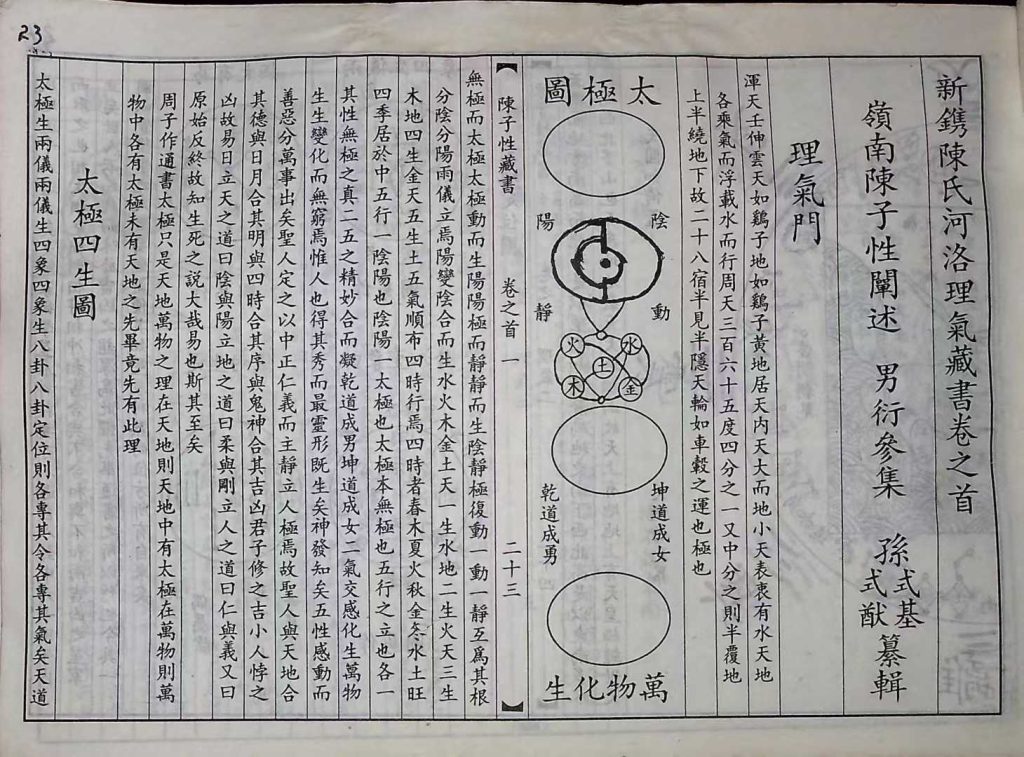 23
新鐫陳氏河洛理氣藏書卷之首
嶺南陳子性闡述 男衍參集 孫式基式猷纂輯
理氣門
渾天壬伸雲天如鷄子地如鷄子黃地居天内天大而地小天表裏有水天地
各乘氣而浮載水而行周天三百六十五度四分之一又中分之則半覆地
上半繞地下故二十八宿半見半隱天輪如車轂之運也極也
太極圖
陰 動
陽 靜
火 水 土 木 金
坤道成女
乾道成勇
萬物化生
陳子性藏書 卷之首 一 二十三
無極而太極太極動而生陽陽極而靜靜而生陰靜極復動一動一靜互爲其根
分陰分陽兩儀立焉陽變陰合而生水火木金土天一生水地二生火天三生
木地四生金天五生土五氣順布四時行焉四時者春木夏火秋金冬水土旺
四季居於中五行一陰陽也陰陽一太極也太極本無極也五行之立也各一
其性無極之真二五之精妙合而凝乾道成男坤道成女二氣交感化生萬物
生生變化而無窮焉惟人也得其秀而最靈形既生矣神發知矣五性感動而
善惡分萬事出矣聖人定之以中正仁義而主靜立人極焉故聖人與天地合
其德與日月合其明與四時合其序與鬼神合其吉凶君子修之吉小人悖之
凶故易日立天之道曰陰與陽立地之道曰柔與剛立人之道曰仁與義又曰
原始反終故知生死之説大哉易也斯其至矣
周子作通書太極只是天地萬物之理在天地則天地中有太極在萬物則萬
物中各有太極未有天地之先畢竟先有此理
太極四生圖
太極生兩儀兩儀生四象四象生八卦八卦定位則各專其令各專其氣矣天道